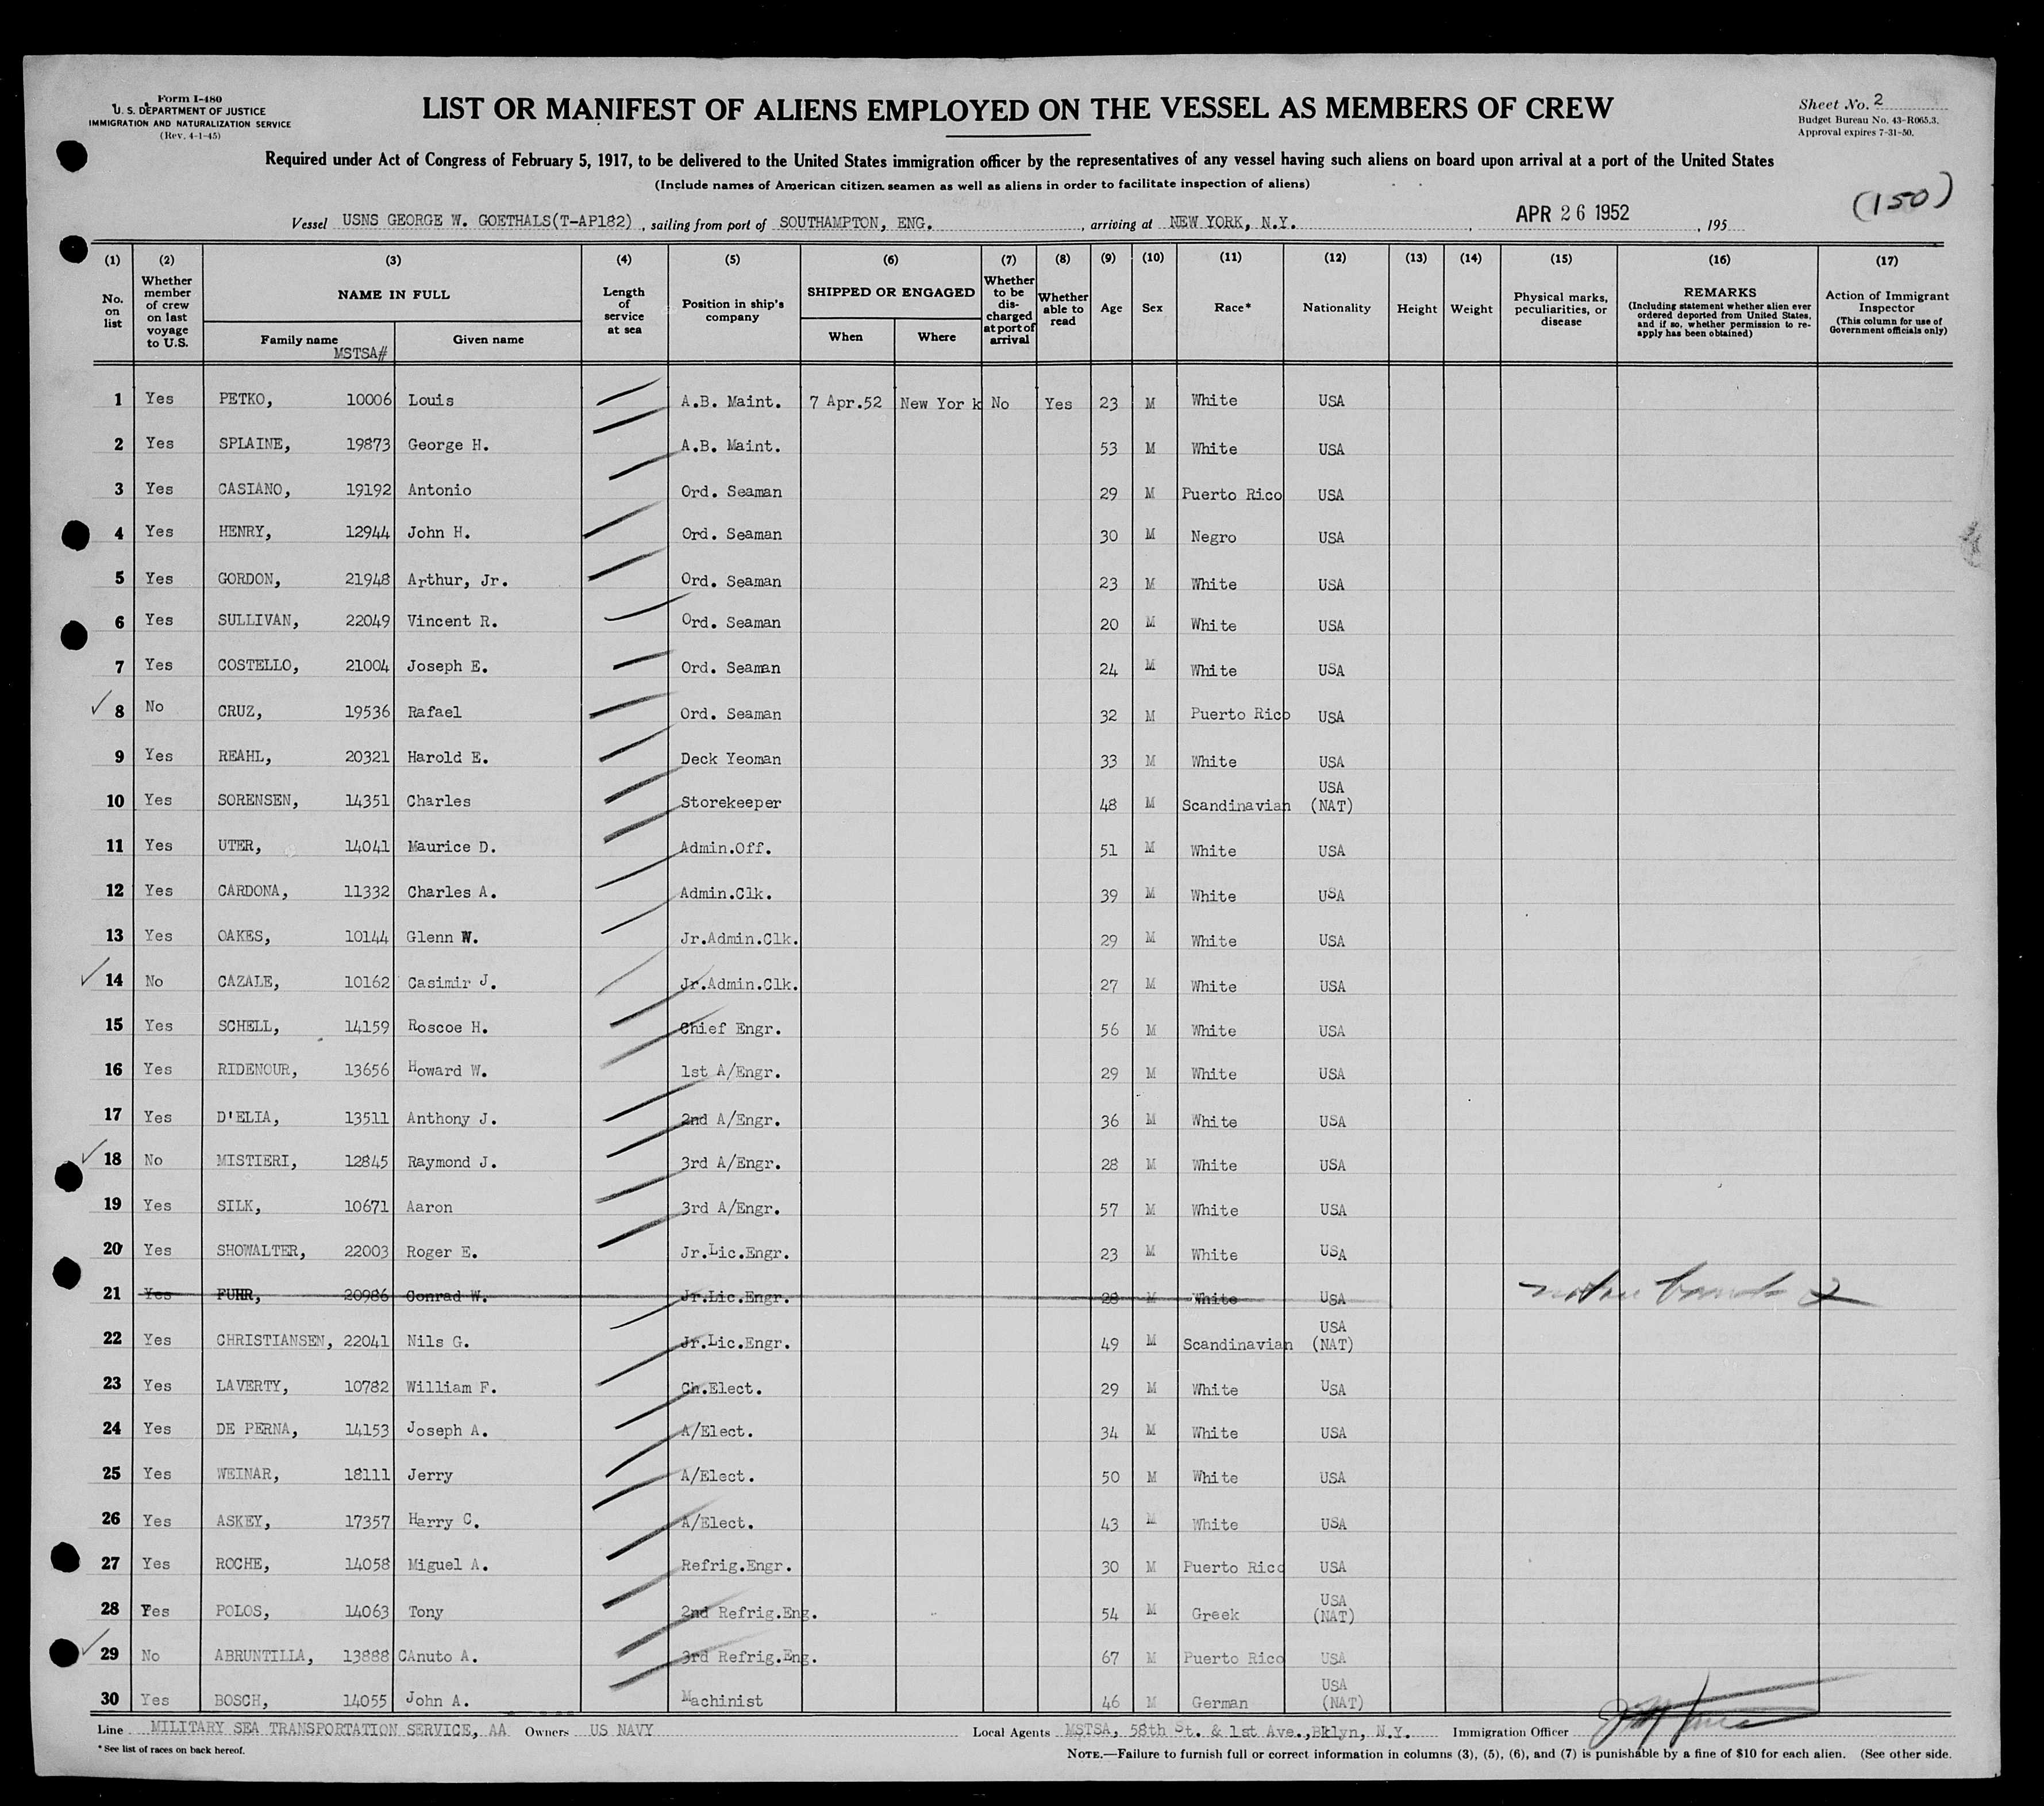 Form I-480
U. S. DEPARTMENT OF JUSTICE
IMMIGRATION AND NATURALIZATION SERVICE
(Rev. 4-1-45)
LIST OR MANIFEST OF ALIENS EMPLOYED ON THE VESSEL AS MEMBERS OF CREW
Sheet No. 2
Budget Bureau No. 43-R065.3.
Approval expires 7-31-50.
Required under Act of Congress of February 5, 1917, to be delivered to the United States immigration officer by the representatives of any vessel having such aliens on board upon arrival at a port of the United States
(Include names of American citizen seamen as well as aliens in order to facilitate inspection of aliens)
(150)
Vessel USNS GEORGE W. GOETHALS(T-AP182), sailing from port of SOUTHAMPTON, ENG., arriving at NEW YORK, N.Y., APR 26 1952, 195
(1) (2) (3) (4) (5) (6) (7) (8) (9) (10) (11) (12) (13) (14) (15) (16) (17)
No. on list
Whether member of crew on last voyage to U.S.
NAME IN FULL
Family name MSTSA#
Given name
Length of service at sea
Position in ship's company
SHIPPED OR ENGAGED
When
Where
Whether to be discharged at port of arrival
Whether able to read
Age
Sex
Race*
Nationality
Height
Weight
Physical marks, peculiarities, or disease
REMARKS
(Including statement whether alien ever ordered deported from United States, and if so, whether permission to reapply has been obtained)
Action of Immigrant Inspector
(This column for use of Government officials only)
1 Yes PETKO, 10006 Louis A.B. Maint. 7 Apr.52 New Yor k No Yes 23 M White USA
2 Yes SPLAINE, 19873 George H. A.B. Maint. 53 M White USA
3 Yes CASIANO, 19192 Antonio Ord. Seaman 29 M Puerto Rico USA
4 Yes HENRY, 12944 John H. Ord. Seaman 30 M Negro USA
5 Yes GORDON, 21948 Arthur, Jr. Ord. Seaman 23 M White USA
6 Yes SULLIVAN, 22049 Vincent R. Ord. Seaman 20 M White USA
7 Yes COSTELLO, 21004 Joseph E. Ord. Seaman 24 M White USA
8 No CRUZ, 19536 Rafael Ord. Seaman 32 M Puerto Rico USA
9 Yes REAHL, 20321 Harold E. Deck Yeoman 33 M White USA
10 Yes SORENSEN, 14351 Charles Storekeeper 48 M Scandinavian USA (NAT)
11 Yes UTER, 14041 Maurice D. Admin.Off. 51 M White USA
12 Yes CARDONA, 11332 Charles A. Admin.Clk. 39 M White USA
13 Yes OAKES, 10144 Glenn W. Jr.Admin.Clk. 29 M White USA
14 No CAZALE, 10162 Casimir J. Jr.Admin.Clk. 27 M White USA
15 Yes SCHELL, 14159 Roscoe H. Chief Engr. 56 M White USA
16 Yes RIDENOUR, 13656 Howard W. 1st A/Engr. 29 M White USA
17 Yes D'ELIA, 13511 Anthony J. 2nd A/Engr. 36 M White USA
18 No MISTIERI, 12845 Raymond J. 3rd A/Engr. 28 M White USA
19 Yes SILK, 10671 Aaron 3rd A/Engr. 57 M White USA
20 Yes SHOWALTER, 22003 Roger E. Jr.Lic.Engr. 23 M White USA
21 Yes FUHR, 20986 Conrad W. Jr.Lic.Engr. 28 M White USA
22 Yes CHRISTIANSEN, 22041 Nils G. Jr.Lic.Engr. 49 M Scandinavian USA (NAT)
23 Yes LAVERTY, 10782 William F. Ch.Elect. 29 M White USA
24 Yes DE PERNA, 14153 Joseph A. A/Elect. 34 M White USA
25 Yes WEINAR, 18111 Jerry A/Elect. 50 M White USA
26 Yes ASKEY, 17357 Harry C. A/Elect. 43 M White USA
27 Yes ROCHE, 14058 Miguel A. Refrig.Engr. 30 M Puerto Rico USA
28 Yes POLOS, 14063 Tony 2nd Refrig.Eng. 54 M Greek USA (NAT)
29 No ABRUNTILLA, 13888 CAnuto A. 3rd Refrig.Eng. 67 M Puerto Rico USA
30 Yes BOSCH, 14055 John A. Machinist 46 M German USA (NAT)
Line MILITARY SEA TRANSPORTATION SERVICE, AA Owners US NAVY Local Agents MSTSA, 58th St. & 1st Ave.,Bklyn, N.Y. Immigration Officer
*See list of races on back hereof.
NOTE.—Failure to furnish full or correct information in columns (3), (5), (6), and (7) is punishable by a fine of $10 for each alien. (See other side.